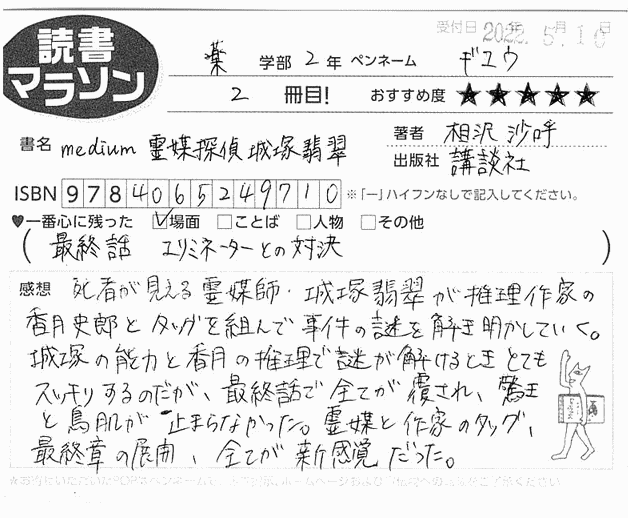 受付日 2022年 5月 10日
読書
マラソン
薬 学部 2年 ペンネーム ギユウ
2 冊目! おすすめ度 ★★★★★
書名 medium 霊媒探偵城塚翡翠
著者 相沢沙呼
出版社 講談社
ISBN 9784065249710 ※「-」ハイフンなしで記入してください。
♥一番心に残った ☑場面 □ことば □人物 □その他
( 最終話 エリミネーターとの対決 )
感想 死者が見える霊媒師・城塚翡翠が推理作家の
香月史郎とタッグを組んで事件の謎を解き明かしていく。
城塚の能力と香月の推理で謎が解けるときとても
スッキリするのだが、最終話で全てが覆され、驚き
と鳥肌が止まらなかった。霊媒と作家のタッグ、
最終章の展開、全てが新感覚だった。